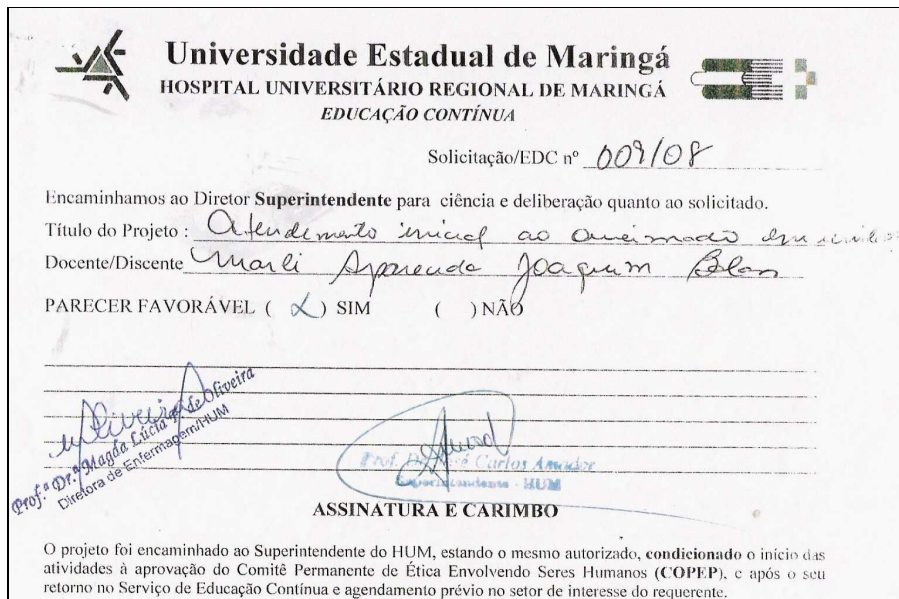 Universidade Estadual de Maringá
HOSPITAL UNIVERSITÁRIO REGIONAL DE MARINGÁ
EDUCAÇÃO CONTÍNUA
Solicitação/EDC nº 009/08
Encaminhamos ao Diretor Superintendente para ciência e deliberação quanto ao solicitado.
Título do Projeto : Atendimento inicial ao queimado em
Docente/Discente Marli Aparecida Joaquim
PARECER FAVORÁVEL ( X ) SIM ( ) NÃO
Prof.ª Dr.ª Magda Lúcia F. de Oliveira
Diretora de Enfermagem/HUM
Prof. Dr. José Carlos Amador
Superintendente - HUM
ASSINATURA E CARIMBO
O projeto foi encaminhado ao Superintendente do HUM, estando o mesmo autorizado, condicionado o início das
atividades à aprovação do Comitê Permanente de Ética Envolvendo Seres Humanos (COPEP), e após o seu
retorno no Serviço de Educação Contínua e agendamento prévio no setor de interesse do requerente.